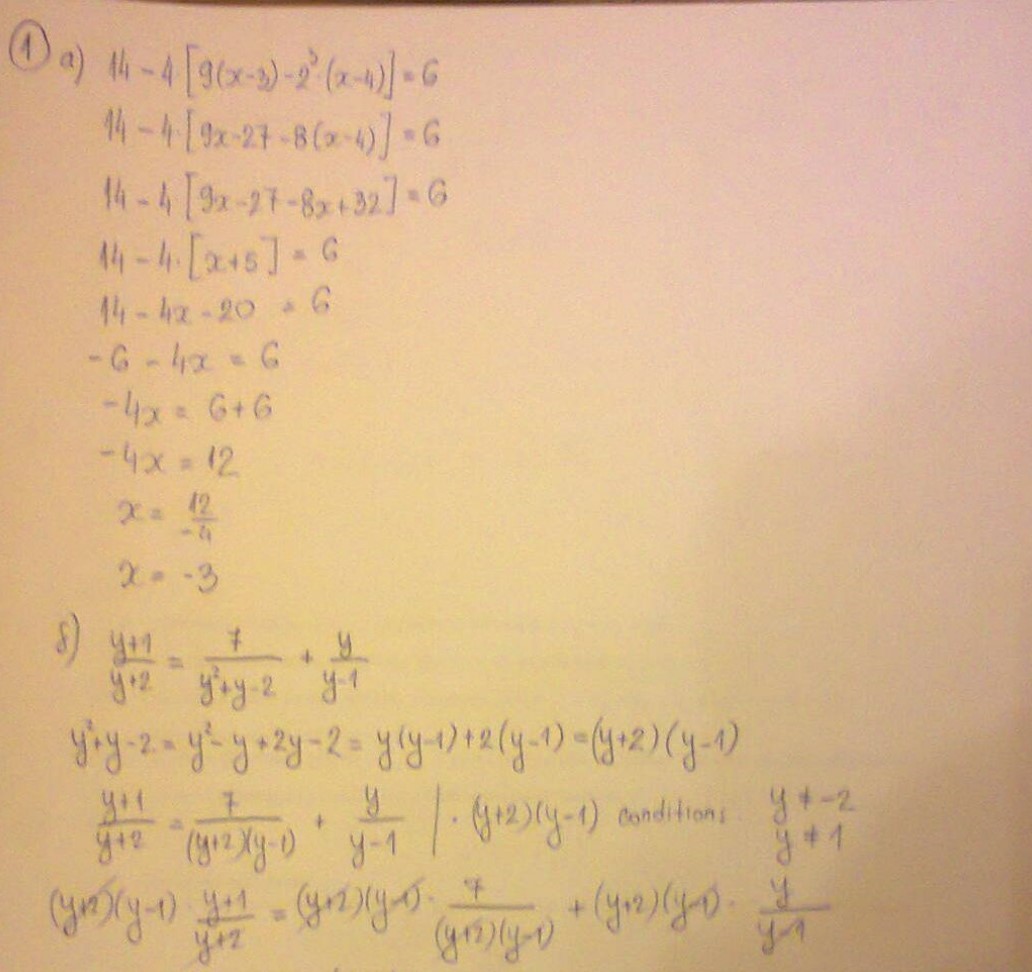 ① a) 14 - 4·[9(x-3) - 2³·(x-4)] = 6
14 - 4·[9x - 27 - 8(x-4)] = 6
14 - 4[9x - 27 - 8x + 32] = 6
14 - 4·[x+5] = 6
14 - 4x - 20 = 6
-6 - 4x = 6
-4x = 6+6
-4x = 12
x = 12/-4
x = -3
b) (y+1)/(y+2) = 7/(y²+y-2) + y/(y-1)
y²+y-2 = y²-y+2y-2 = y(y-1)+2(y-1) = (y+2)(y-1)
(y+1)/(y+2) = 7/((y+2)(y-1)) + y/(y-1) | ·(y+2)(y-1) conditions: y ≠ -2 y ≠ 1
(y+2)(y-1)·(y+1)/(y+2) = (y+2)(y-1)·7/((y+2)(y-1)) + (y+2)(y-1)·y/(y-1)